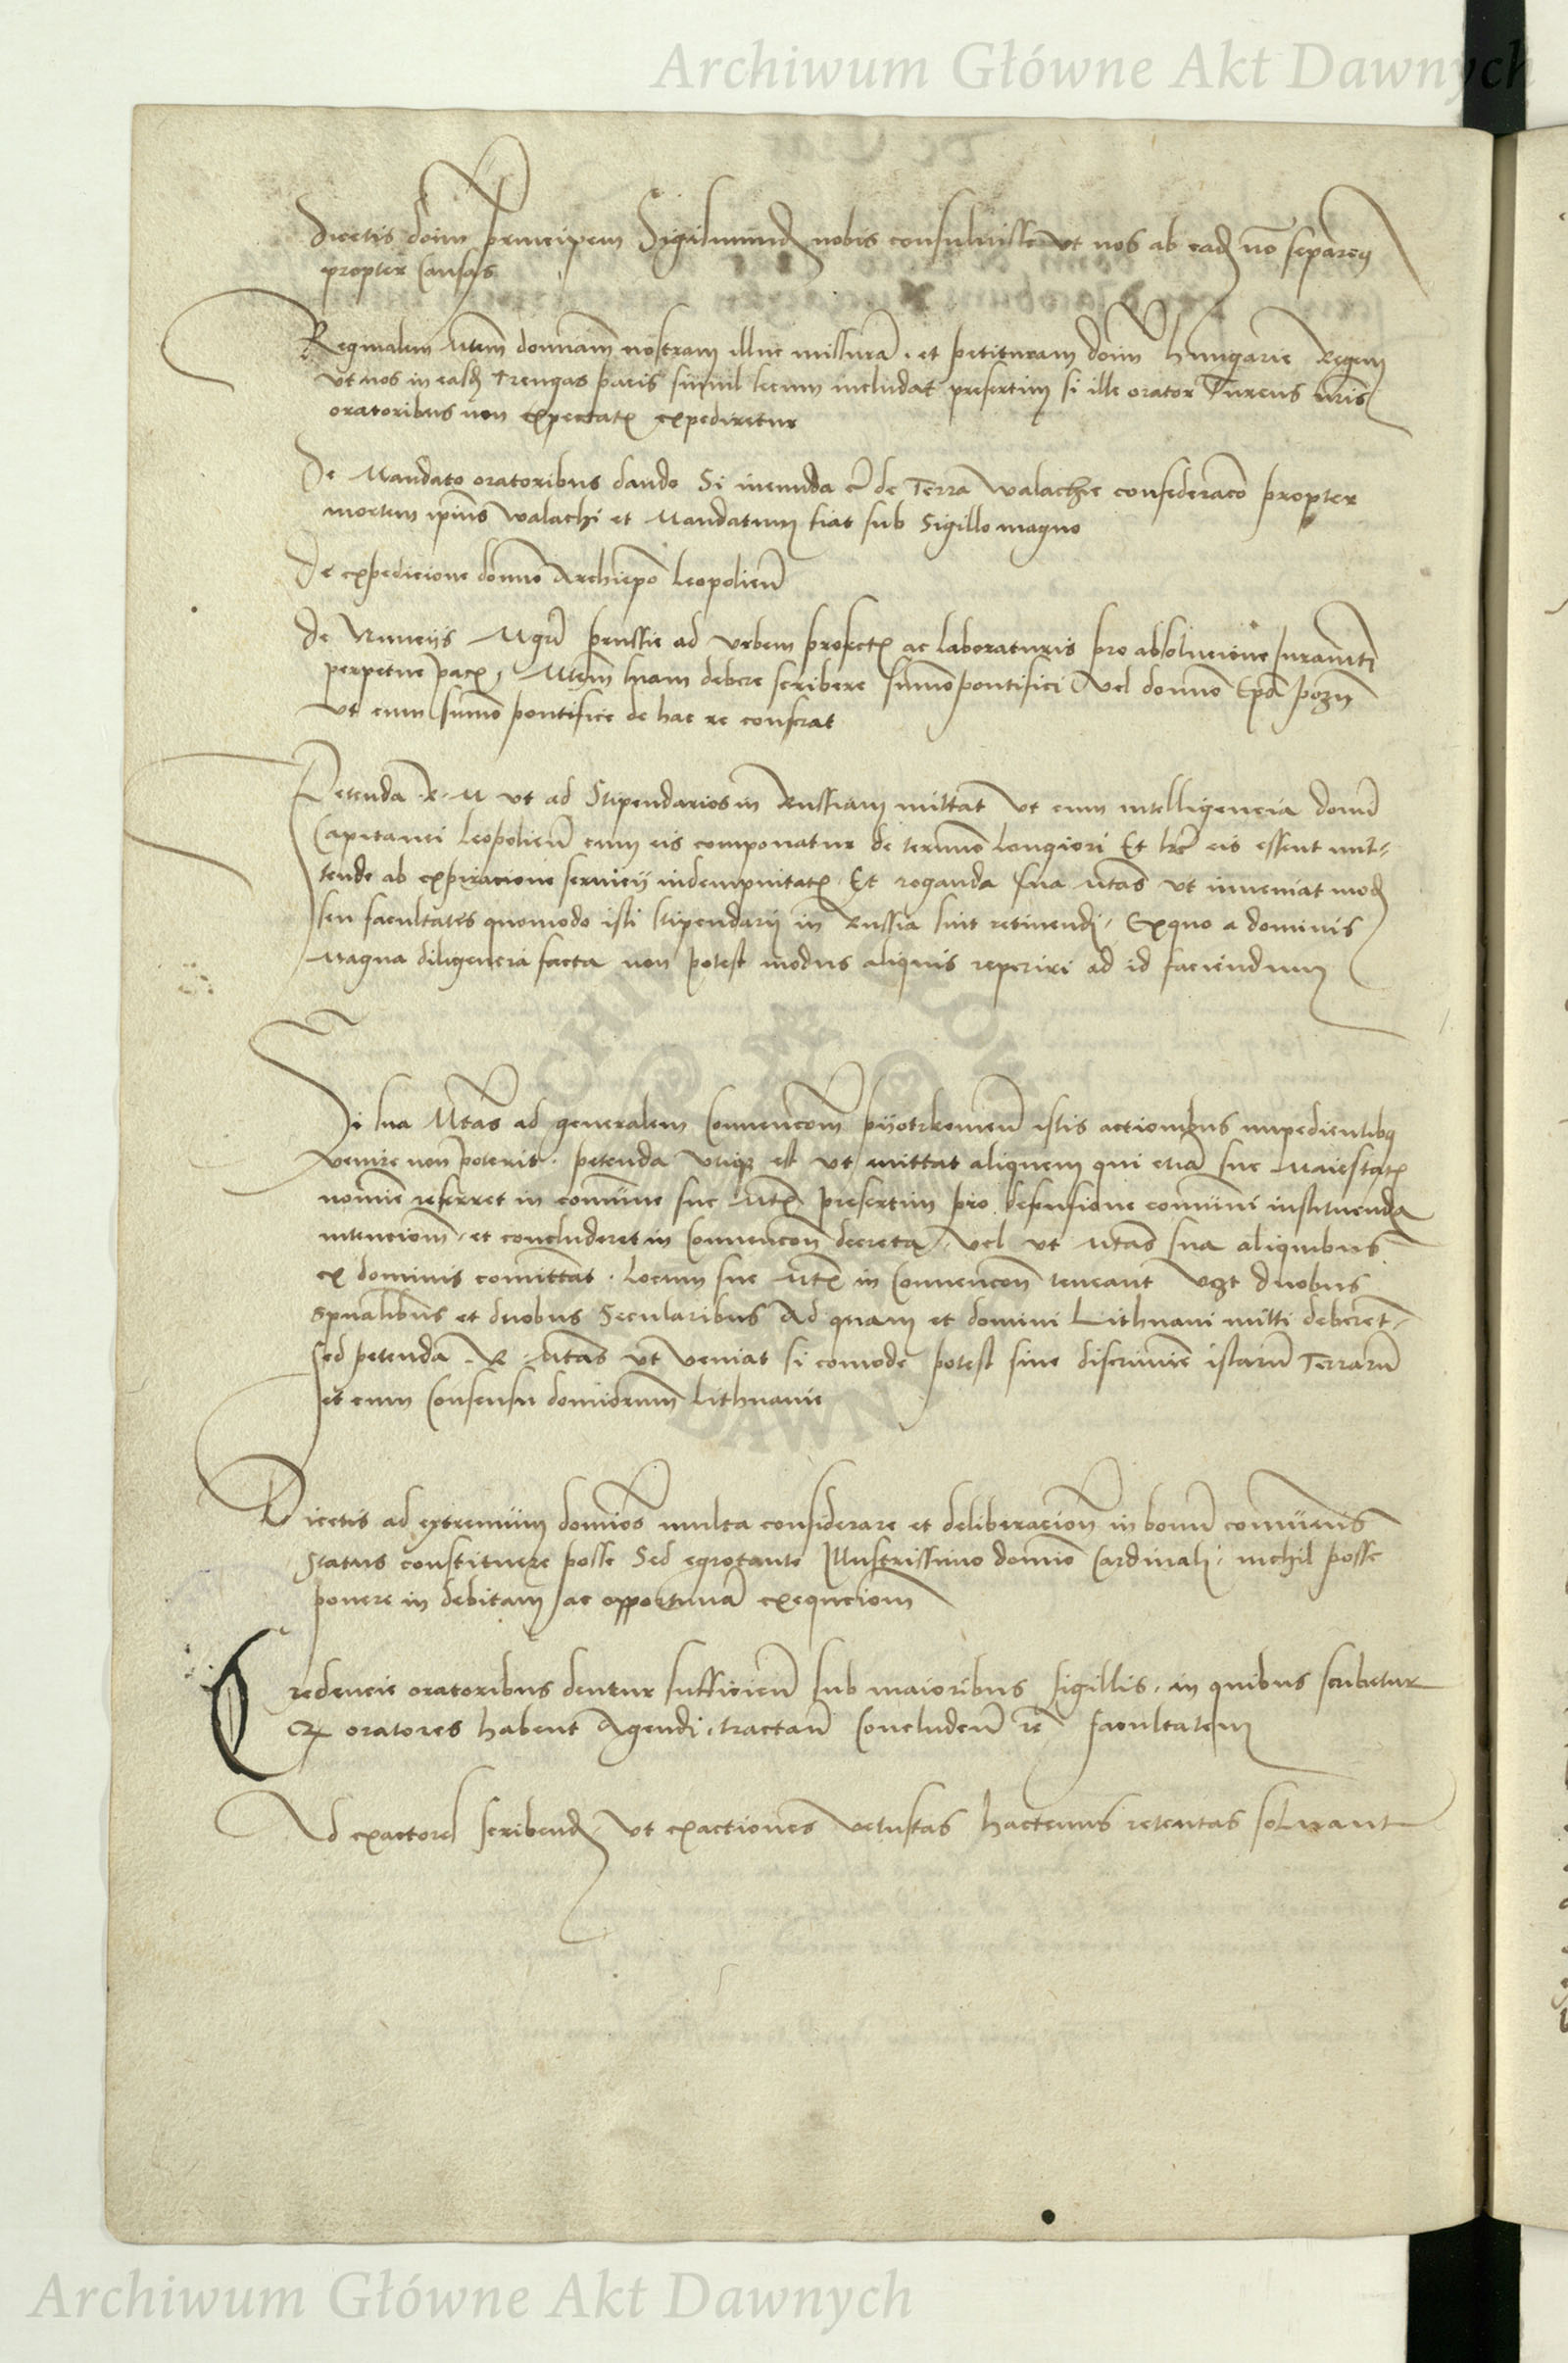 Archiwum Główne Akt Dawnych
Dicetis dom̄ principem Sigismund nobis consuluisse vt nos ab ead nō separet
propter causas
Reginalem Mtem dominam nostram illuc missuram. et petituram dom̄ hungarie Regem
vt nos in easd Treugas pacis simul secum includat presertim si ille orator Turcus nris
oratoribus non expectatꝭ expediretur
De Mandato oratoribus dando Si ineunda eēt de Terra Walachie confederaco propter
mortem ipius walachi et Mandatum fiat sub Sigillo magno
De expedicione domno Archiepo Leopolien̄
De Nunciis Mgri prussie ad vrbem profectꝭ ac laboraturis pro absolucione Iuramēti
perpetue pacꝭ, Mtem suam debere scribere summo pontifici vel domno Epo pozn̄
vt cum summo pontifice de hac re conferat
Petenda .R. M vt ad Stipendarios in Russiam mittat vt cum intelligencia domī
Capitanei Leopolien̄ cum eis componatur de termino longiori Et lr̄e eis essent mit-
tende ab expiracione seruicij indempnitatꝭ. Et roganda sua Mtas vt inueniat mod
seu facultates quomodo isti stipendarij in Russia sint retinendi, Exquo a dominis
Magna diligencia facta non potest modus aliquis reperiri ad id faciendum
Si sua Mtas ad generalem Conuencōm pijotrkouien̄ istis actionibus impedientibꝫ
venire non poterit. petenda vtiqꝫ est vt mittat aliquem qui etiā sue Maiestatꝭ
nomine referret in comune sue Mtꝭ presertim pro defensione comuni instituenda
intencionē. et concluderet in Conuencōn decreta, vel vt Mtas sua aliquibus
ex dominis comittat. Locum sue Mtꝭ in Conuencōn teneant vꝫt duobus
Spualibus et duobus Secularibus Ad quam et domini Lithuani mitti deberēt.
Sed petenda .R. Mtas vt veniat si comode potest sine discrimine istarū Terrarū
et cum Consensu dominorum Lithuanie
Dicetis ad extremum dominos multa considerare et deliberacion̄ in bonū comunis
Status constituere posse Sed egrotante Illustrissimo domino Cardinali, nichil posse
ponere in debitam ac opportunā exequcionē
Credencie oratoribus dentur sufficien̄ sub maioribus sigillis, in quibus scribetur
qꝫ oratores habent Agendi, tractan̄ Concluden̄ rē facultatem
Ad exactores scribend vt exactiones vetustas hactenus retentas soluant
Archiwum Główne Akt Dawnych